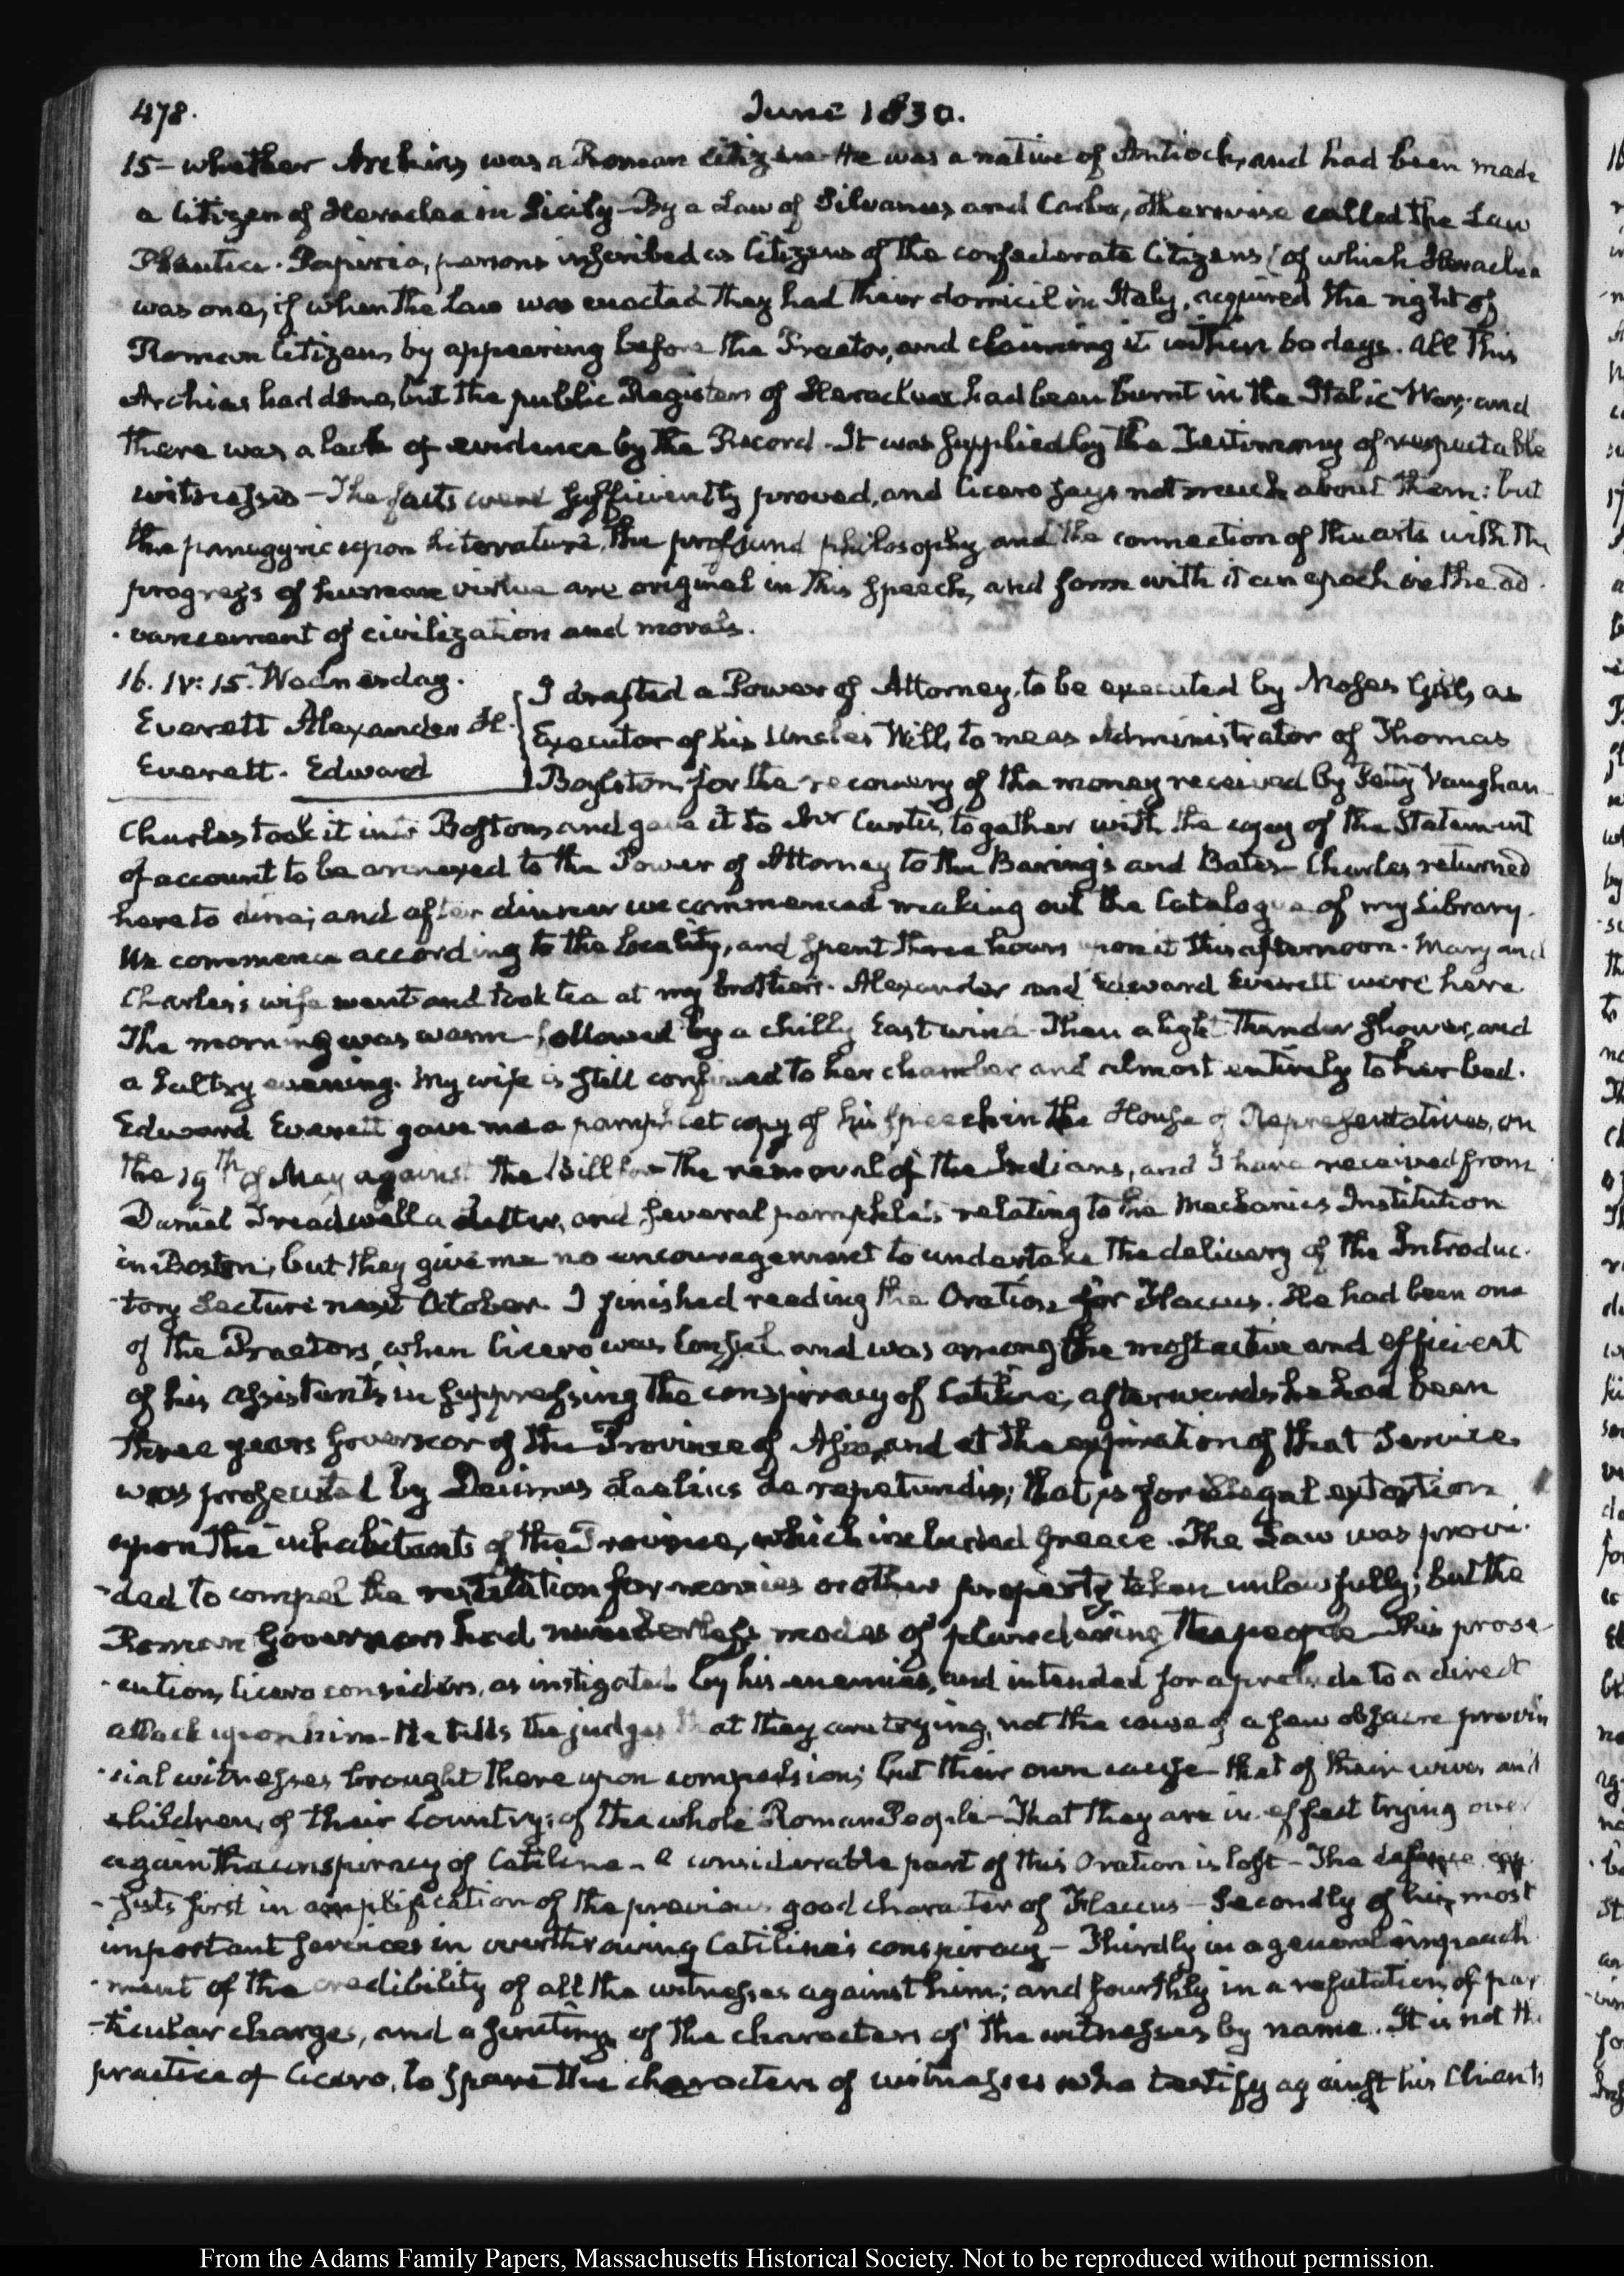 478.
June 1830.
15 - whether Archias was a Roman Citizen - He was a native of Antioch, and had been made
a Citizen of Heraclea in Sicily - By a Law of Silvanus and Carbo, otherwise called the Law
Plautia-Papiria, persons inscribed as Citizens of the confederate Citizens (of which Heraclea
was one, if when the Law was enacted they had their domicil in Italy, acquired the right of
Roman Citizens by appearing before the Praetor, and claiming it within 60 days. All this
Archias had done, but the public Registers of Heraclea had been burnt in the Italic War; and
there was a lack of evidence by the Record. It was supplied by the Testimony of respectable
witnesses - The facts were sufficiently proved, and Cicero says not much about them: but
the panegyric upon Literature, the profound philosophy and the connection of the arts with the
progress of human virtue are original in this speech, and form with it an epoch in the ad-
-vancement of civilization and morals.
16. IV: 15. Wednesday.
Everett Alexander H.
Everett. Edward
I drafted a Power of Attorney, to be executed by Moses Gill, as
Executor of his Uncle's Will, to me as Administrator of Thomas
Boylston, for the recovery of the money received by Petty Vaughan
Charles took it into Boston, and gave it to Mr Curtis, together with the copy of the Statement
of account to be annexed to the Power of Attorney to the Barings and Bates - Charles returned
here to dine; and after dinner we commenced making out the Catalogue of my Library.
We commence according to the locality, and spent three hours upon it this afternoon. Mary and
Charles's wife went and took tea at my brother's. Alexander and Edward Everett were here
The morning was warm - followed by a chilly East wind - Then a light Thunder shower, and
a sultry evening. My wife is still confined to her chamber and almost entirely to her bed.
Edward Everett gave me a pamphlet copy of his speech in the House of Representatives, on
the 19th of May against the Bill for the removal of the Indians, and I have received from
Daniel Treadwell a Letter, and several pamphlets relating to the Mechanics Institution
in Boston; but they give me no encouragement to undertake the delivery of the Introduc-
-tory Lecture next October. I finished reading the Oration for Flaccus. He had been one
of the Praetors, when Cicero was Consul, and was among the most active and efficient
of his assistants in suppressing the conspiracy of Catiline; afterwards he had been
three years Governor of the Province of Asia, and at the expiration of that Service
was prosecuted by Decimus Laelius de repetundis; that is for illegal extortion
upon the inhabitants of the Province, which included Greece. The Law was provi-
-ded to compel the restitution for monies or other property taken unlawfully; but the
Roman Governors had numberless modes of plundering the people - This prose-
-cution, Cicero considers, as instigated by his enemies, and intended for a prelude to a direct
attack upon him - He tells the judges that they are trying, not the cause of a few obscure provin
-cial witnesses brought there upon compulsion; but their own cause - that of their wives and
children, of their Country; of the whole Roman People - That they are in effect trying over
again the conspiracy of Catiline - A considerable part of this Oration is lost - The defence con
-sists first in amplification of the previous good character of Flaccus - Secondly of his most
important services in overthrowing Catiline's conspiracy - Thirdly in a general impeach
-ment of the credibility of all the witnesses against him; and fourthly in a refutation of par
-ticular charges, and a scrutiny of the characters of the witnesses by name. It is not the
practice of Cicero, to spare the characters of witnesses who testify against his Clients
From the Adams Family Papers, Massachusetts Historical Society. Not to be reproduced without permission.